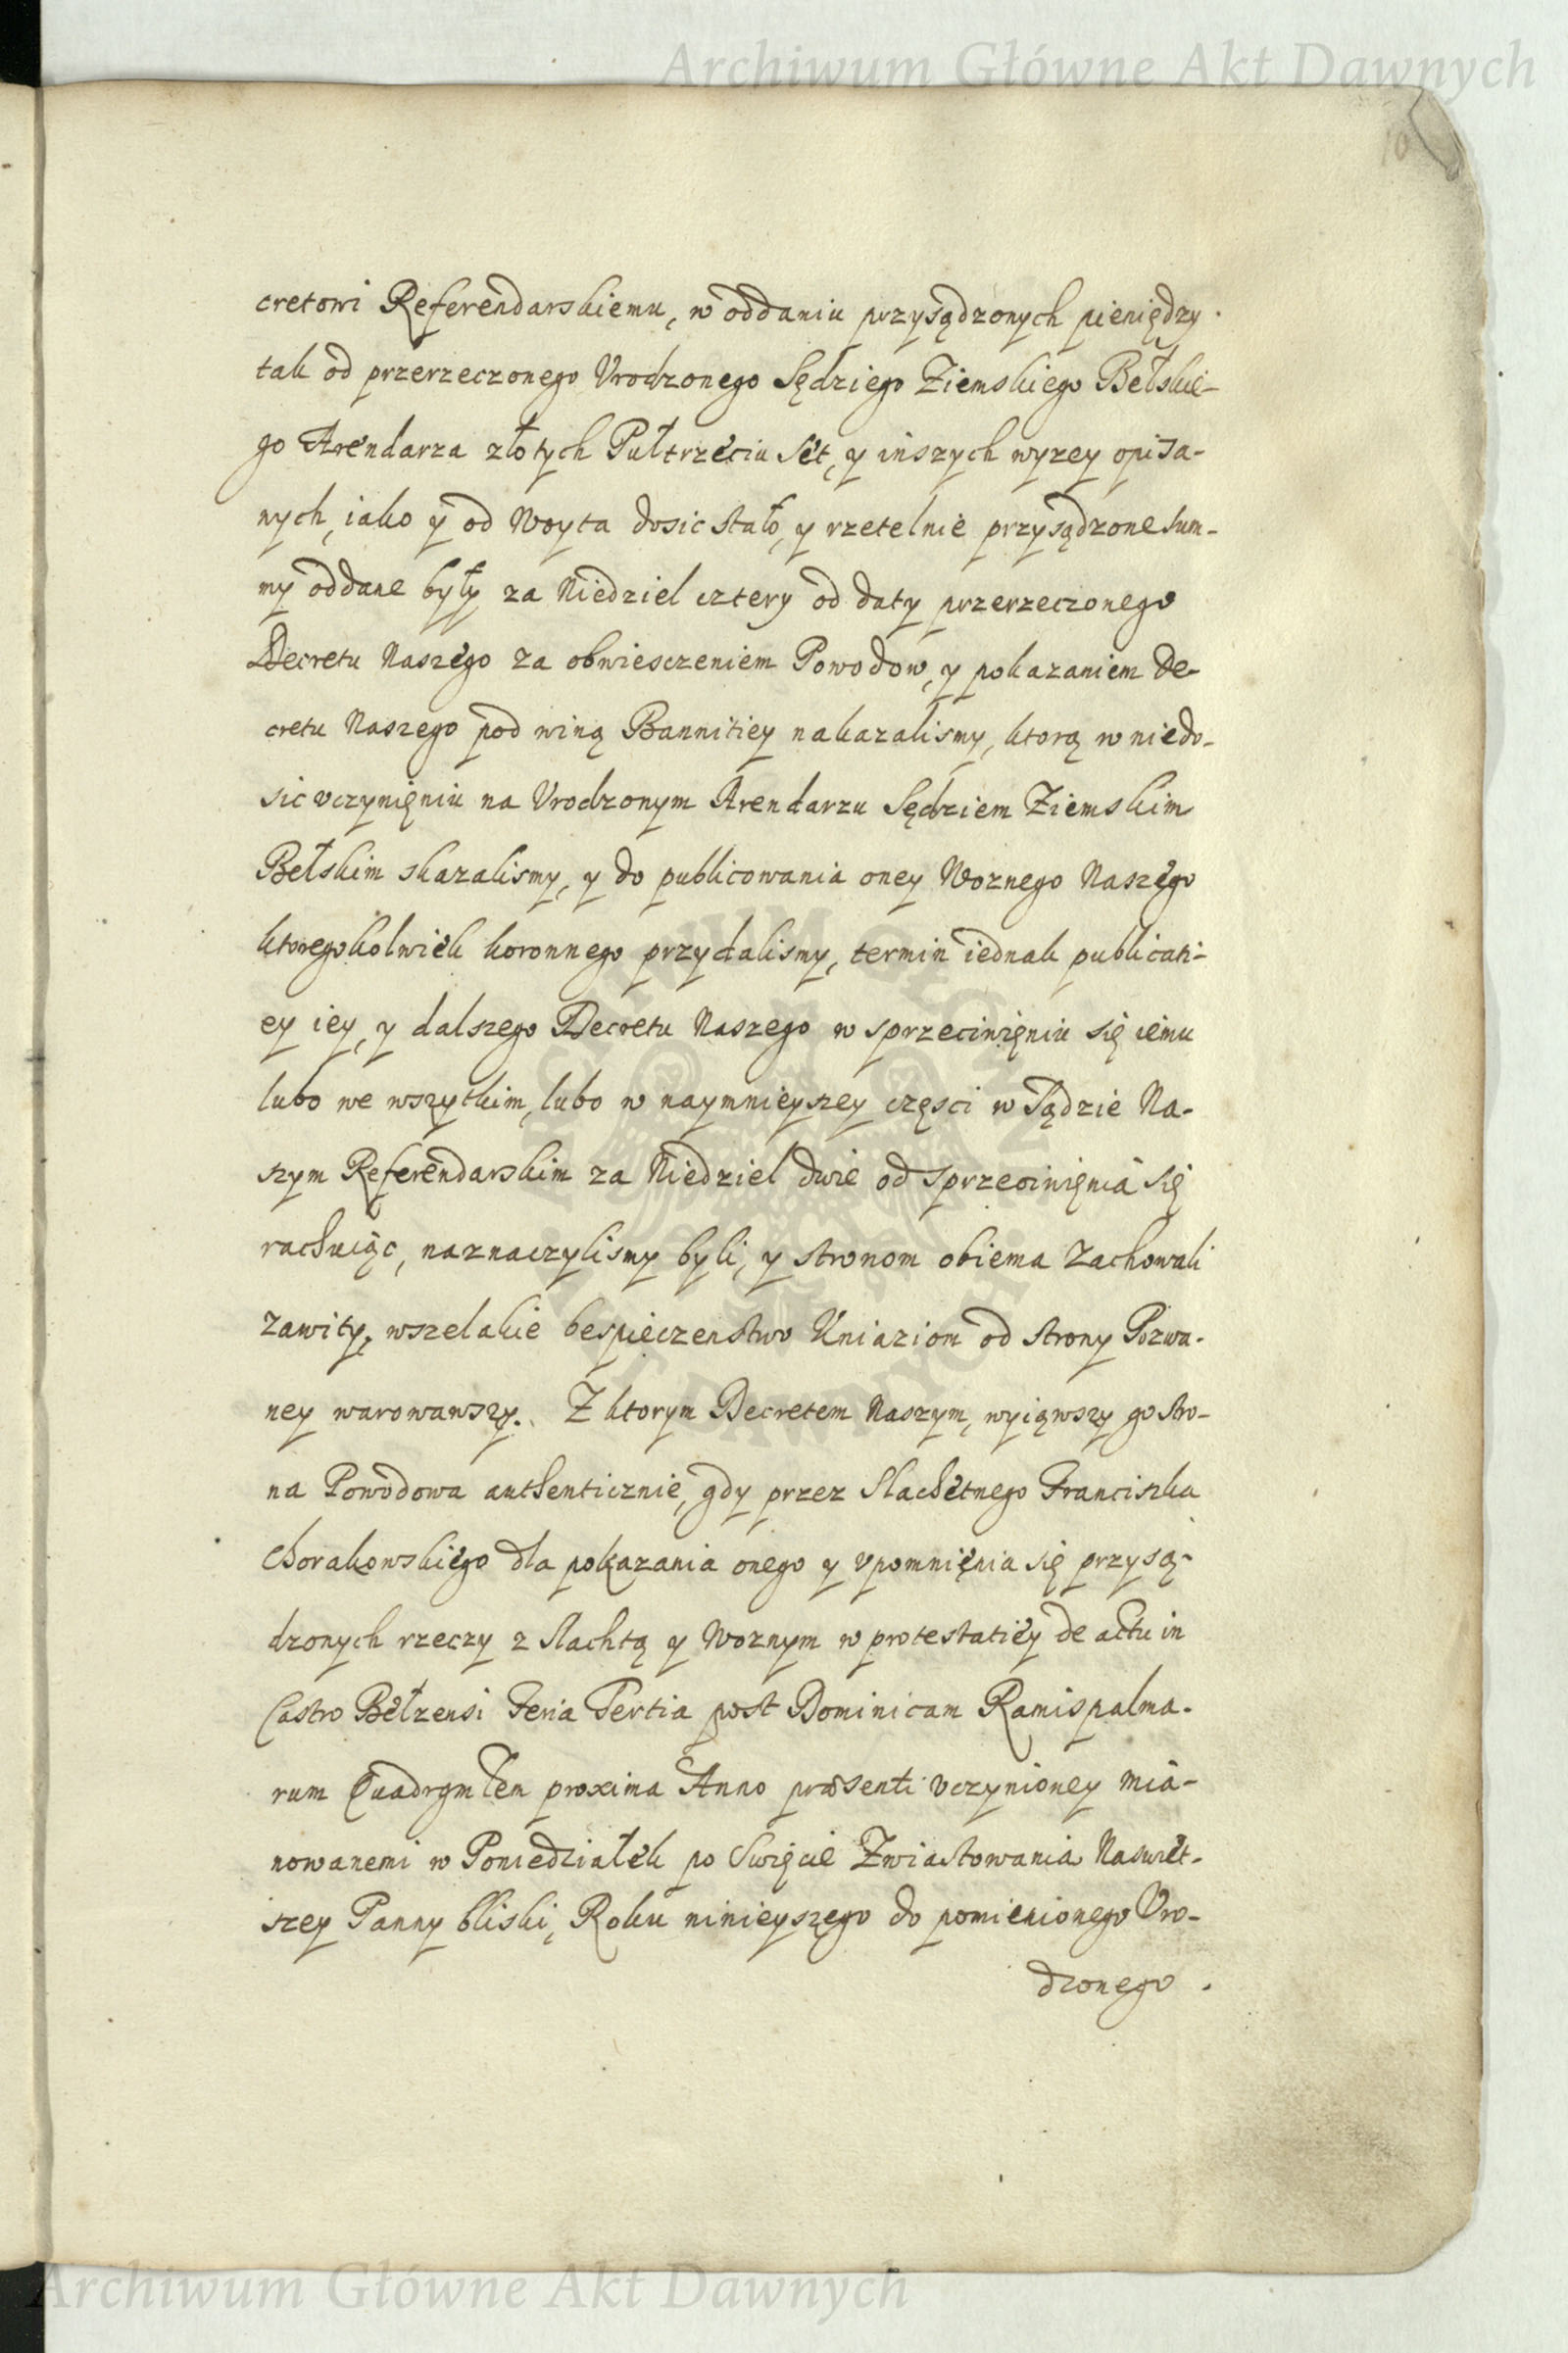 Archiwum Główne Akt Dawnych
10
cretowi Referendarskiemu, w oddaniu przysądzonych pieniędzy
tak od przerzeczonego Vrodzonego Sędziego Ziemskiego Bełskie-
go Arendarza złotych Pułtrzeciu set, y inszych wyzey opisa-
nych, iako y od Woyta dosic stało, y rzetelnie przysądzone sum-
my oddane były za Niedziel cztery od daty przerzeczonego
Decretu Naszego za obwiesczeniem Powodow, y pokazaniem De-
cretu Naszego pod winą Bannitiey nakazalismy, ktorą w niedo-
sic vczynięniu na Vrodzonym Arendarzu Sędziem Ziemskim
Bełskim skazalismy, y do publicowania oney Woznego Naszego
ktoregokolwiek koronnego przydalismy, termin iednak publicati-
ey iey, y dalszego Decretu Naszego w sprzeciwięniu się iemu
lubo we wszytkim, lubo w naymnieyszey częsci w Sądzie Na-
szym Referendarskim za Niedziel dwie od sprzeciwięnia się
rachuiąc, naznaczylismy byli, y stronom obiema zachowali
zawity, wszelakie bespieczenstwo Kniaziom od strony Pozwa-
ney warowawszy. Z ktorym Decretem Naszym, wyiąwszy go stro-
na Powodowa authenticznie, gdy przez Slachetnego Franciszka
Chorakowskiego dla pokazania onego y vpomnięnia się przysą-
dzonych rzeczy z slachtą y Woznym w protestatiey de actu in
Castro Bełzensi Feria Tertia post Dominicam Ramispalma-
rum Quadrgmlem proxima Anno præsenti vczynioney mia-
nowanemi w Poniedziałek po Swięcie Zwiastowania Naswięt-
szey Panny bliski, Roku ninieyszego do pomienionego Vro-
dzonego
Archiwum Główne Akt Dawnych